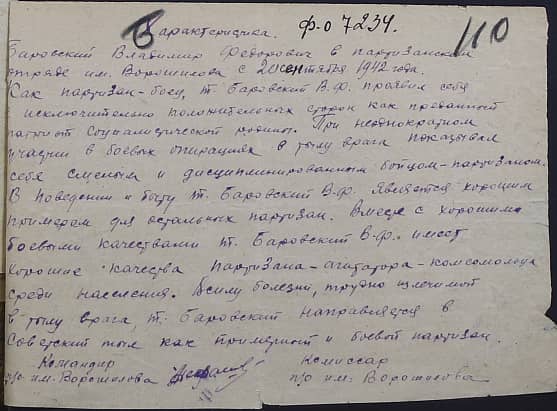 Характеристика. ф.о 7234. 110
Баровский Владимир Федорович в партизанском
отряде им. Ворошилова с 20 сентября 1942 года.
Как партизан-боец, т. Баровский В.Ф. проявил себя
исключительно положительных сторон как преданный
патриот социалистической родины. При неоднократном
участии в боевых операциях в тылу врага показывал
себя смелым и дисциплинированным бойцом-партизаном.
В поведении и быту т. Баровский В.Ф. является хорошим
примером для остальных партизан. Вместе с хорошими
боевыми качествами т. Баровский В.Ф. имеет
хорошие качества партизана-агитатора-комсомольца
среди населения. Всилу болезни, трудно излечимой
в тылу врага, т. Баровский направляется в
Советский тыл как примерный и боевой партизан.
Командир Комиссар
п/о им. Ворошилова п/о им. Ворошилова